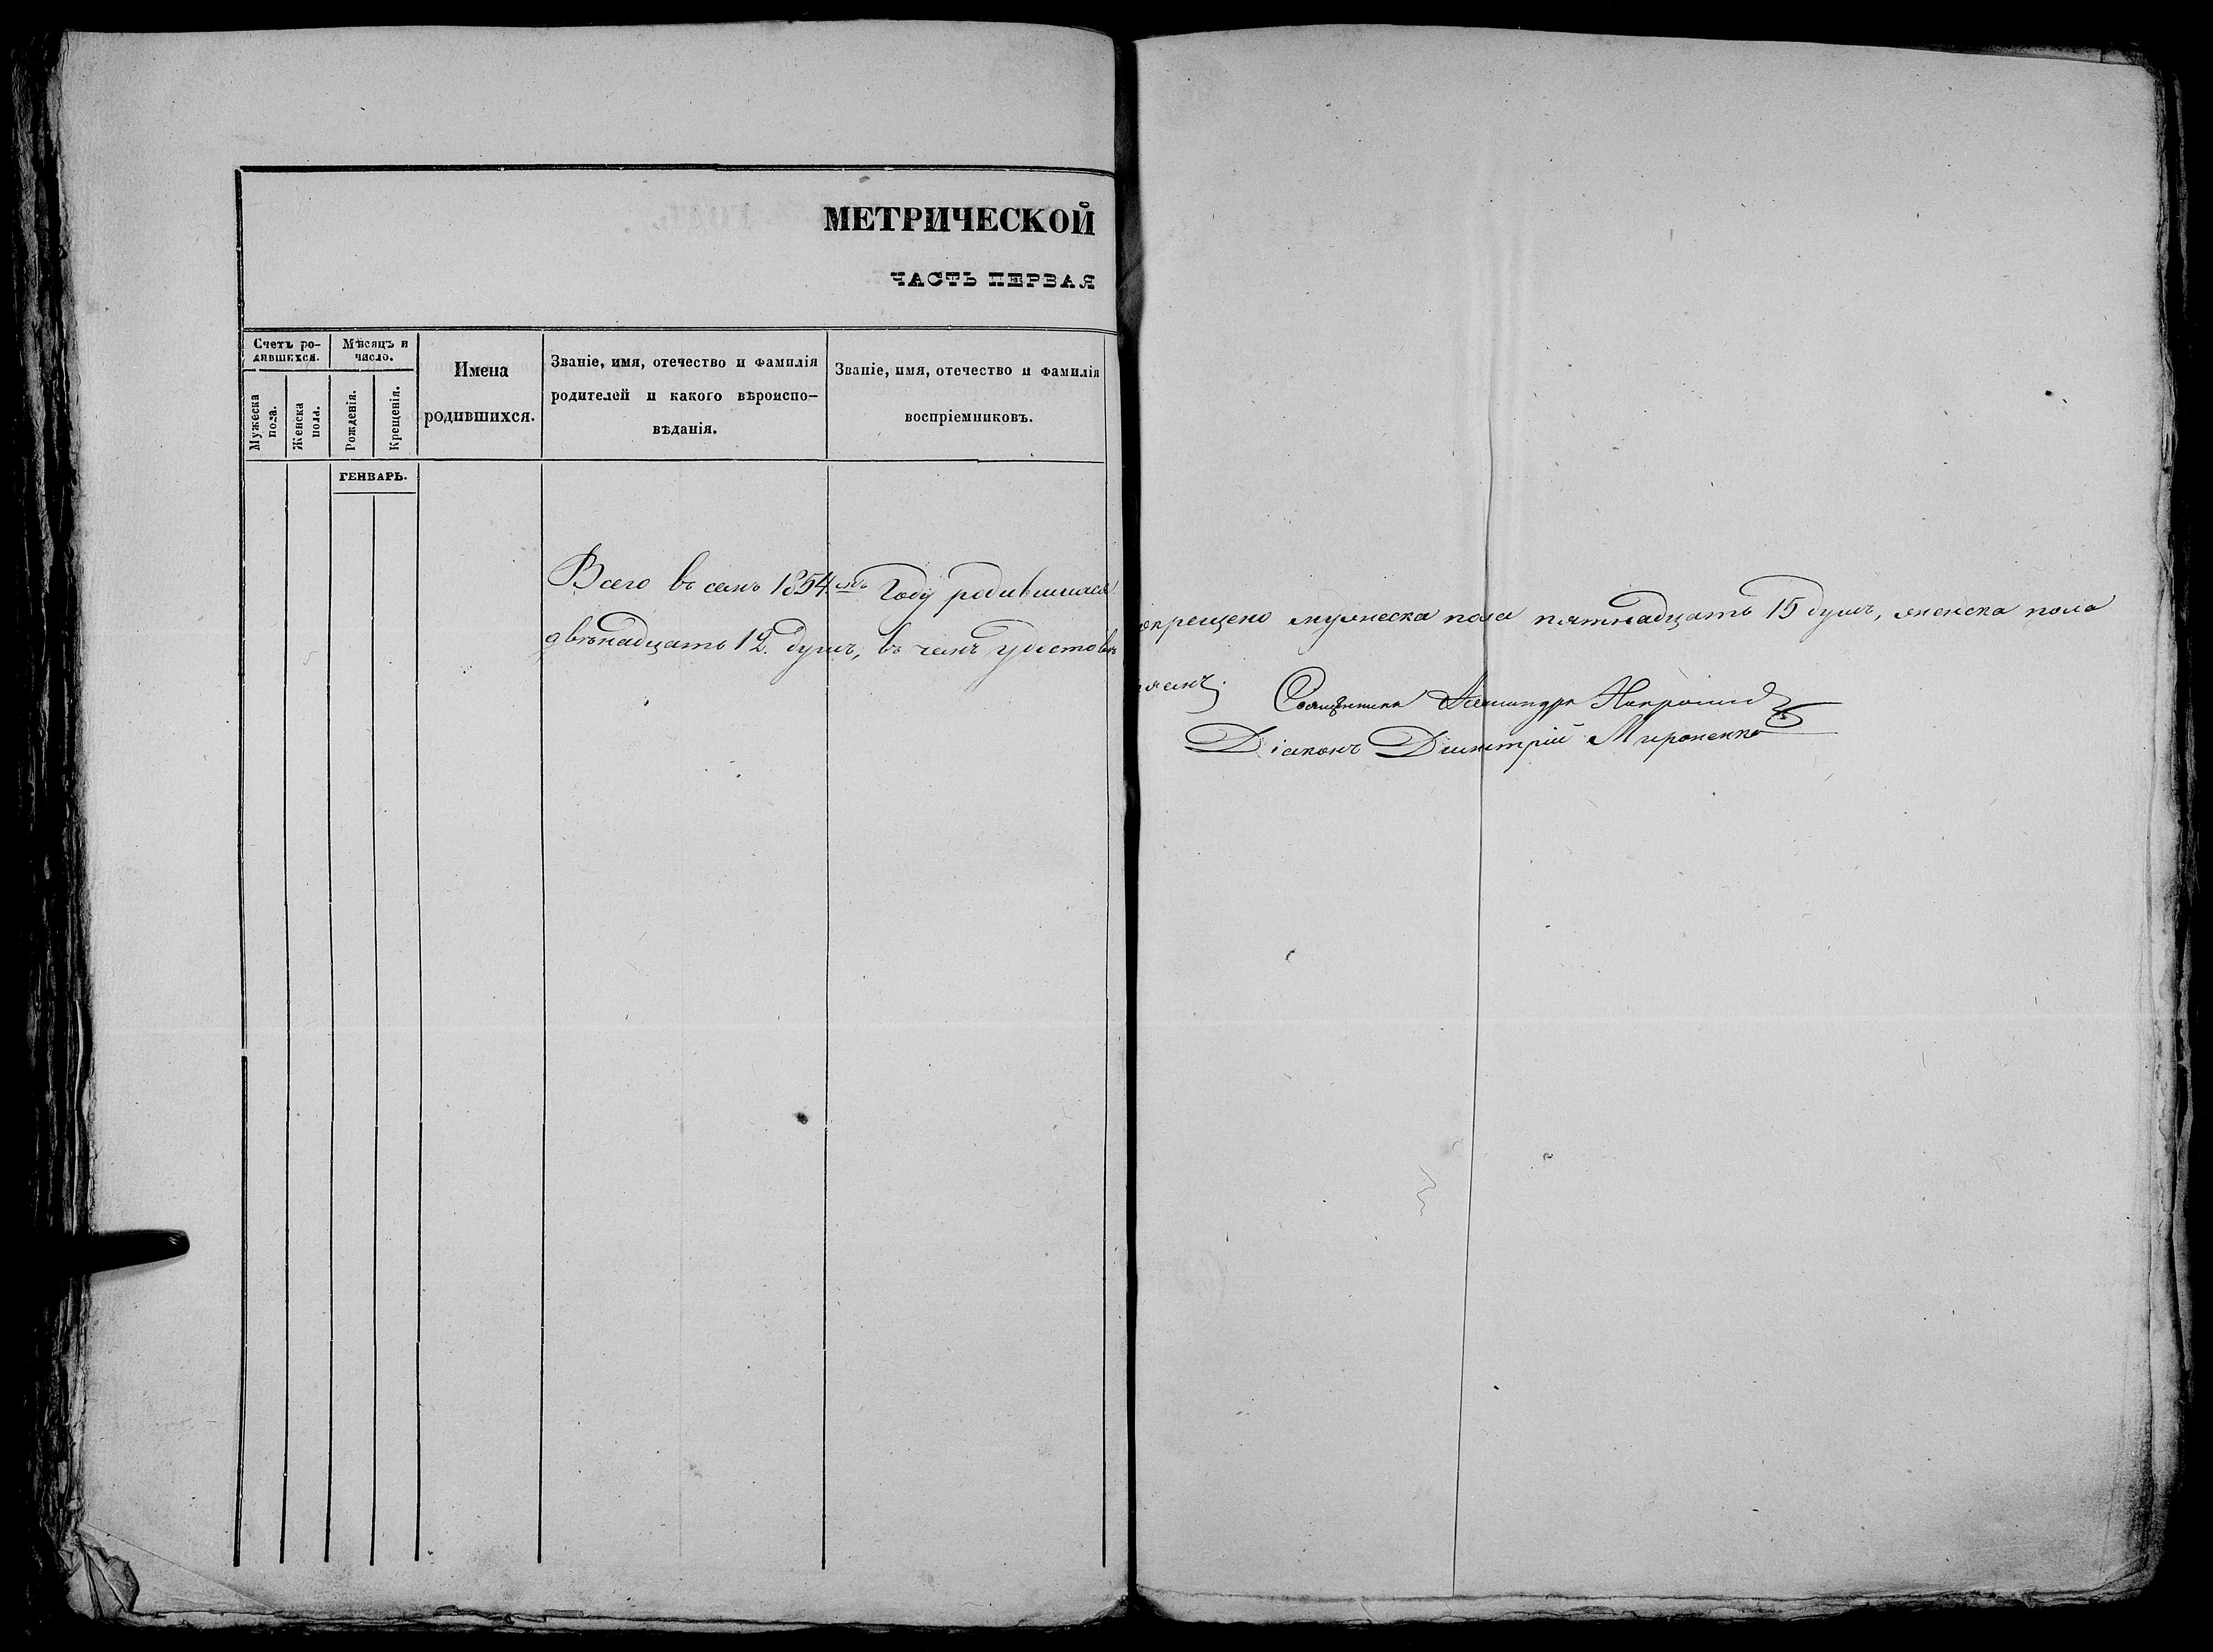 МЕТРИЧЕСКОЙ
ЧАСТЬ ПЕРВАЯ
Счетъ ро-
дившихся.
Мѣсяцъ и
число.
Мужеска
пола.
Женска
пола.
Рожденія.
Крещенія.
Имена
родившихся.
Званіе, имя, отечество и фамилія
родителей и какого вѣроиспо-
вѣданія.
Званіе, имя, отечество и фамилія
воспріемниковъ.
ГЕНВАРЬ.
Всего въ семъ 1854мъ Году родившихся
окрещено мужеска пола пятнадцать 15 душъ, женска пола
двѣнадцать 12. душъ, въ чемъ
Священникъ
Діаконъ Димитрій Мироненко